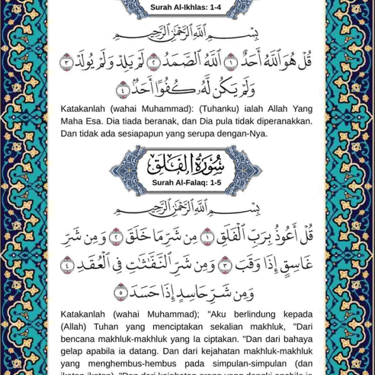 Surah Al-Ikhlas: 1-4
بِسْمِ اللَّهِ الرَّحْمَٰنِ الرَّحِيمِ
قُلْ هُوَ اللَّهُ أَحَدٌ ١ اللَّهُ الصَّمَدُ ٢ لَمْ يَلِدْ وَلَمْ يُولَدْ ٣
وَلَمْ يَكُن لَّهُ كُفُوًا أَحَدٌ ٤
Katakanlah (wahai Muhammad): (Tuhanku) ialah Allah Yang
Maha Esa. Dia tiada beranak, dan Dia pula tidak diperanakkan.
Dan tidak ada sesiapapun yang serupa dengan-Nya.
سُورَةُ الْفَلَقِ
Surah Al-Falaq: 1-5
بِسْمِ اللَّهِ الرَّحْمَٰنِ الرَّحِيمِ
قُلْ أَعُوذُ بِرَبِّ الْفَلَقِ ١ مِن شَرِّ مَا خَلَقَ ٢ وَمِن شَرِّ
غَاسِقٍ إِذَا وَقَبَ ٣ وَمِن شَرِّ النَّفَّاثَاتِ فِي الْعُقَدِ ٤
وَمِن شَرِّ حَاسِدٍ إِذَا حَسَدَ ٥
Katakanlah (wahai Muhammad); "Aku berlindung kepada
(Allah) Tuhan yang menciptakan sekalian makhluk, "Dari
bencana makhluk-makhluk yang Ia ciptakan. "Dan dari bahaya
gelap apabila ia datang. Dan dari kejahatan makhluk-makhluk
yang menghembus-hembus pada simpulan-simpulan (dan